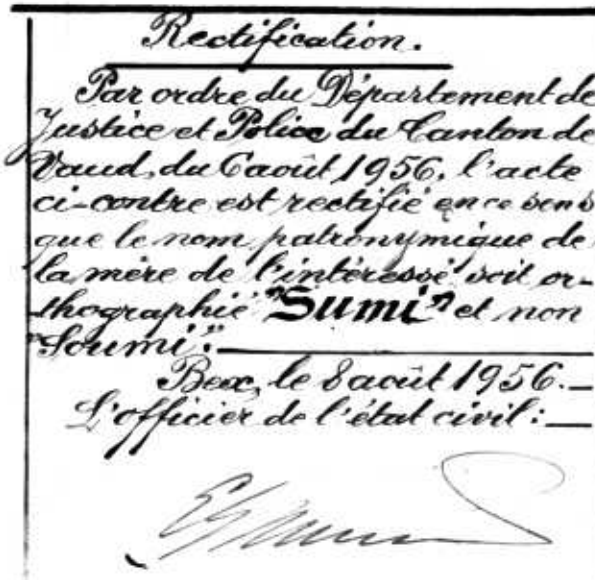 Rectification.
Par ordre du Département de
Justice et Police du Canton de
Vaud, du 6 août 1956, l'acte
ci-contre est rectifié en ce sens
que le nom patronymique de
la mère de l'intéressé soit or-
thographié "Sumi" et non
"Soumi".
Bex, le 8 août 1956.
L'officier de l'état civil: